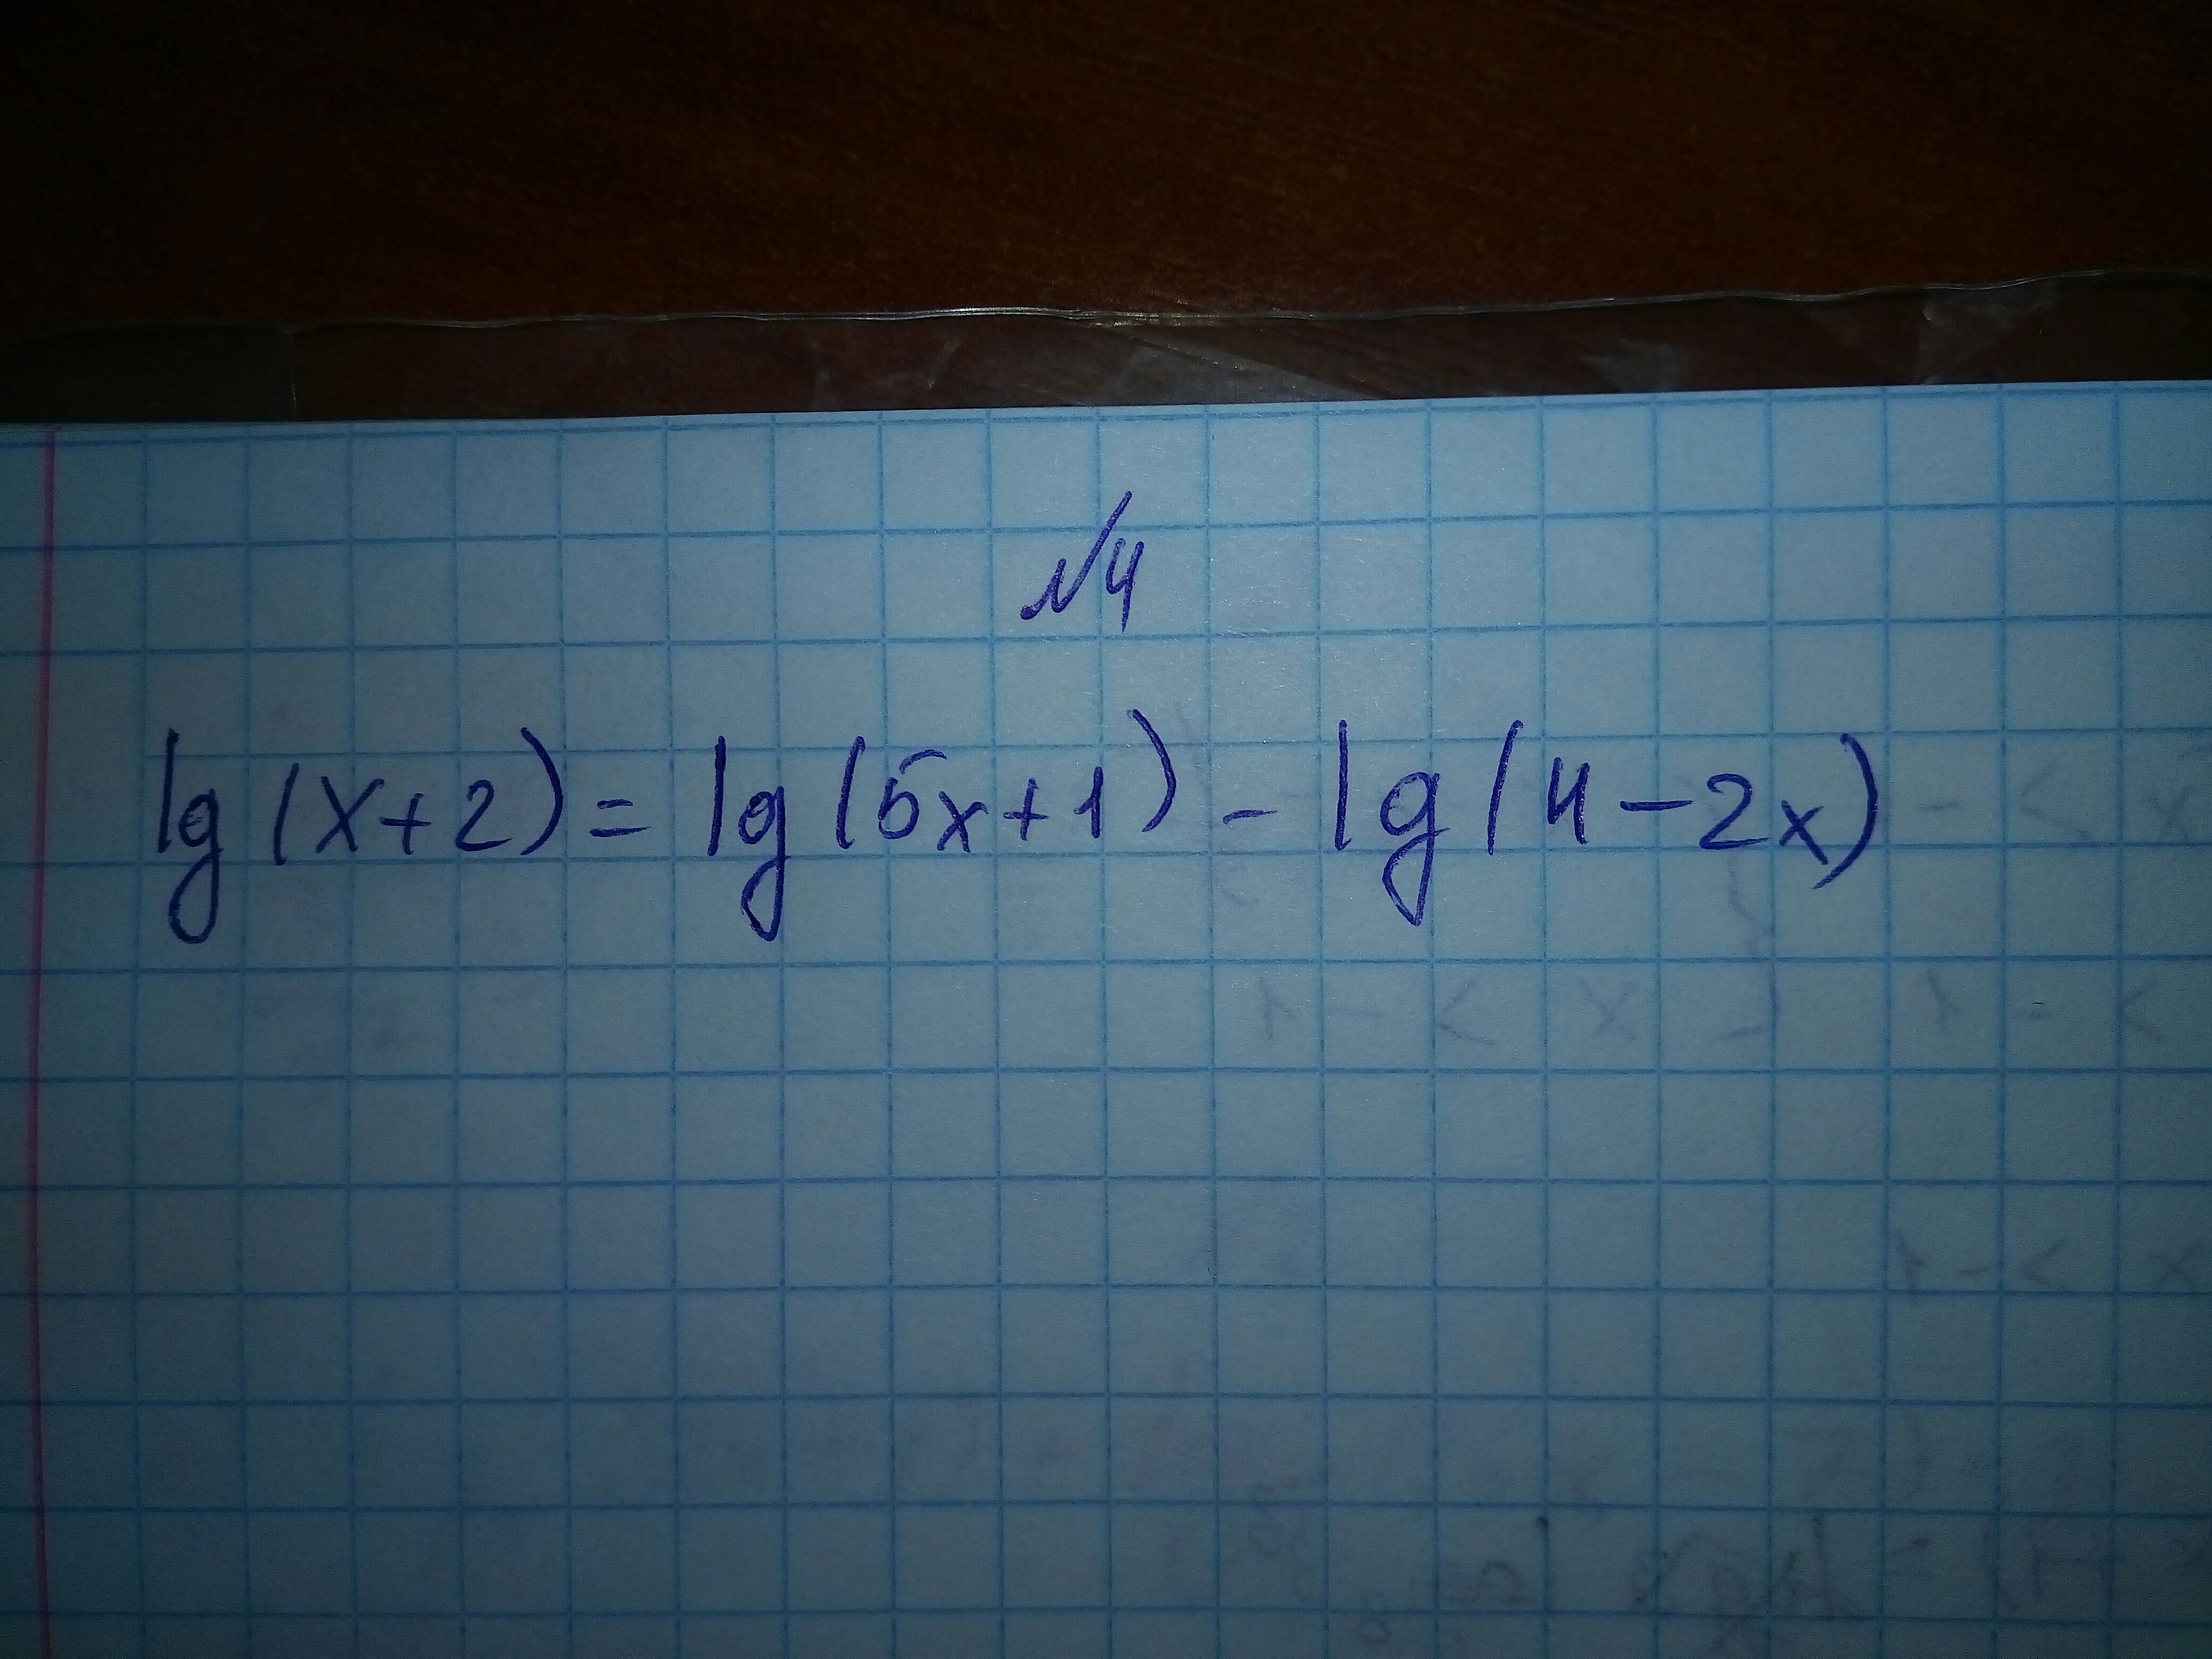 №4
lg(x+2)= lg(5x+1) - lg(4-2x)